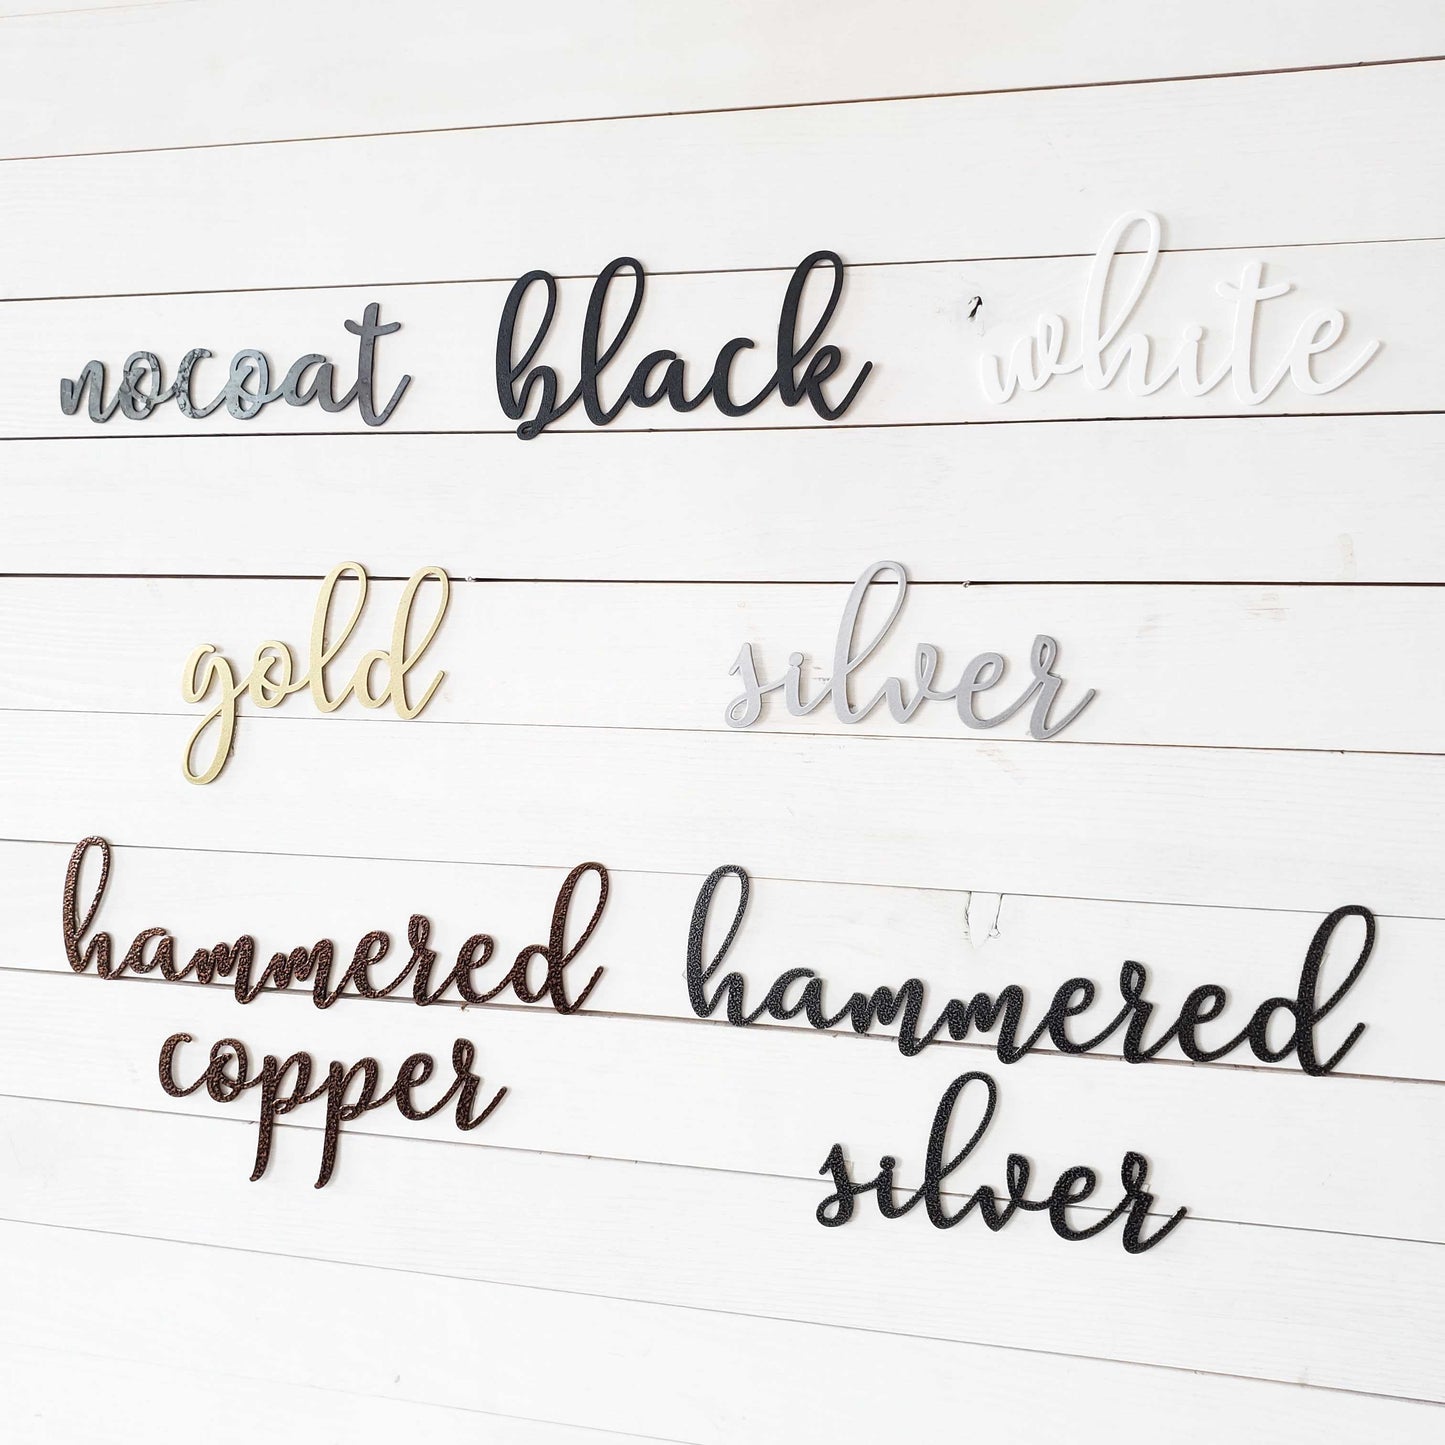 nocoat black white
gold silver
hammered copper
hammered silver